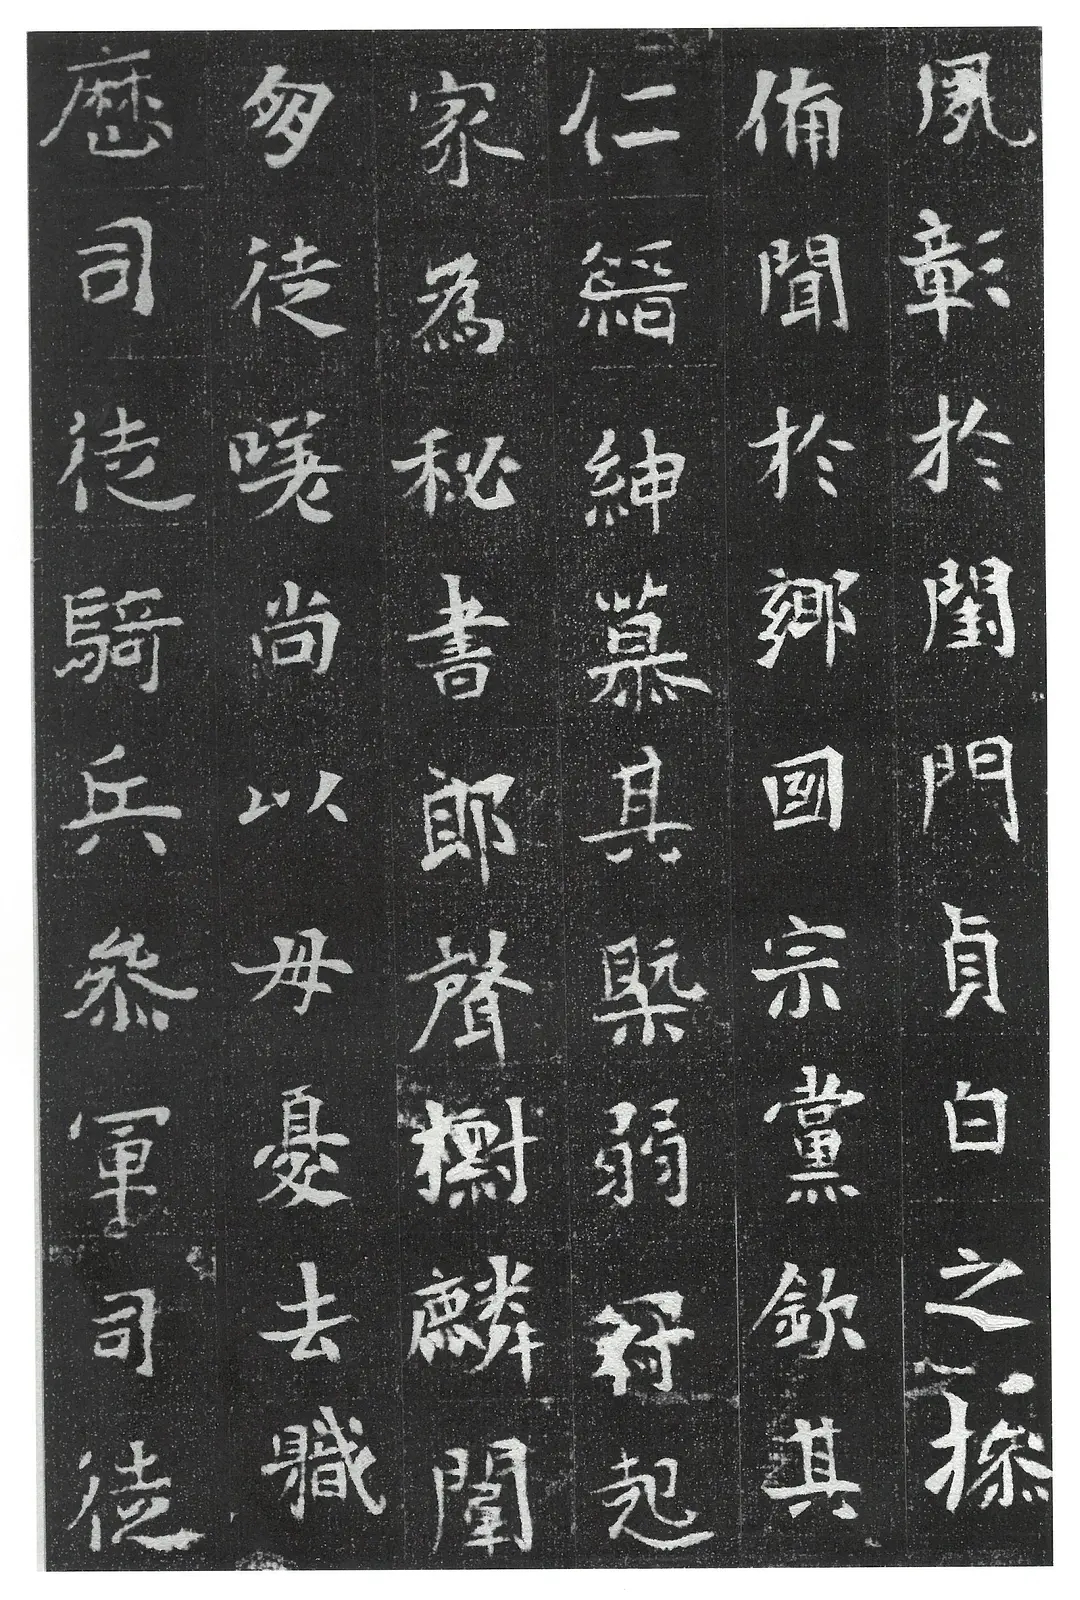 夙彰於閨門貞白之操
備聞於鄉國宗黨欽其
仁縉紳慕其槩弱冠起
家為秘書郎聲樹麟
徒嘆尚以母憂去職
歷司徒騎兵參軍司徒